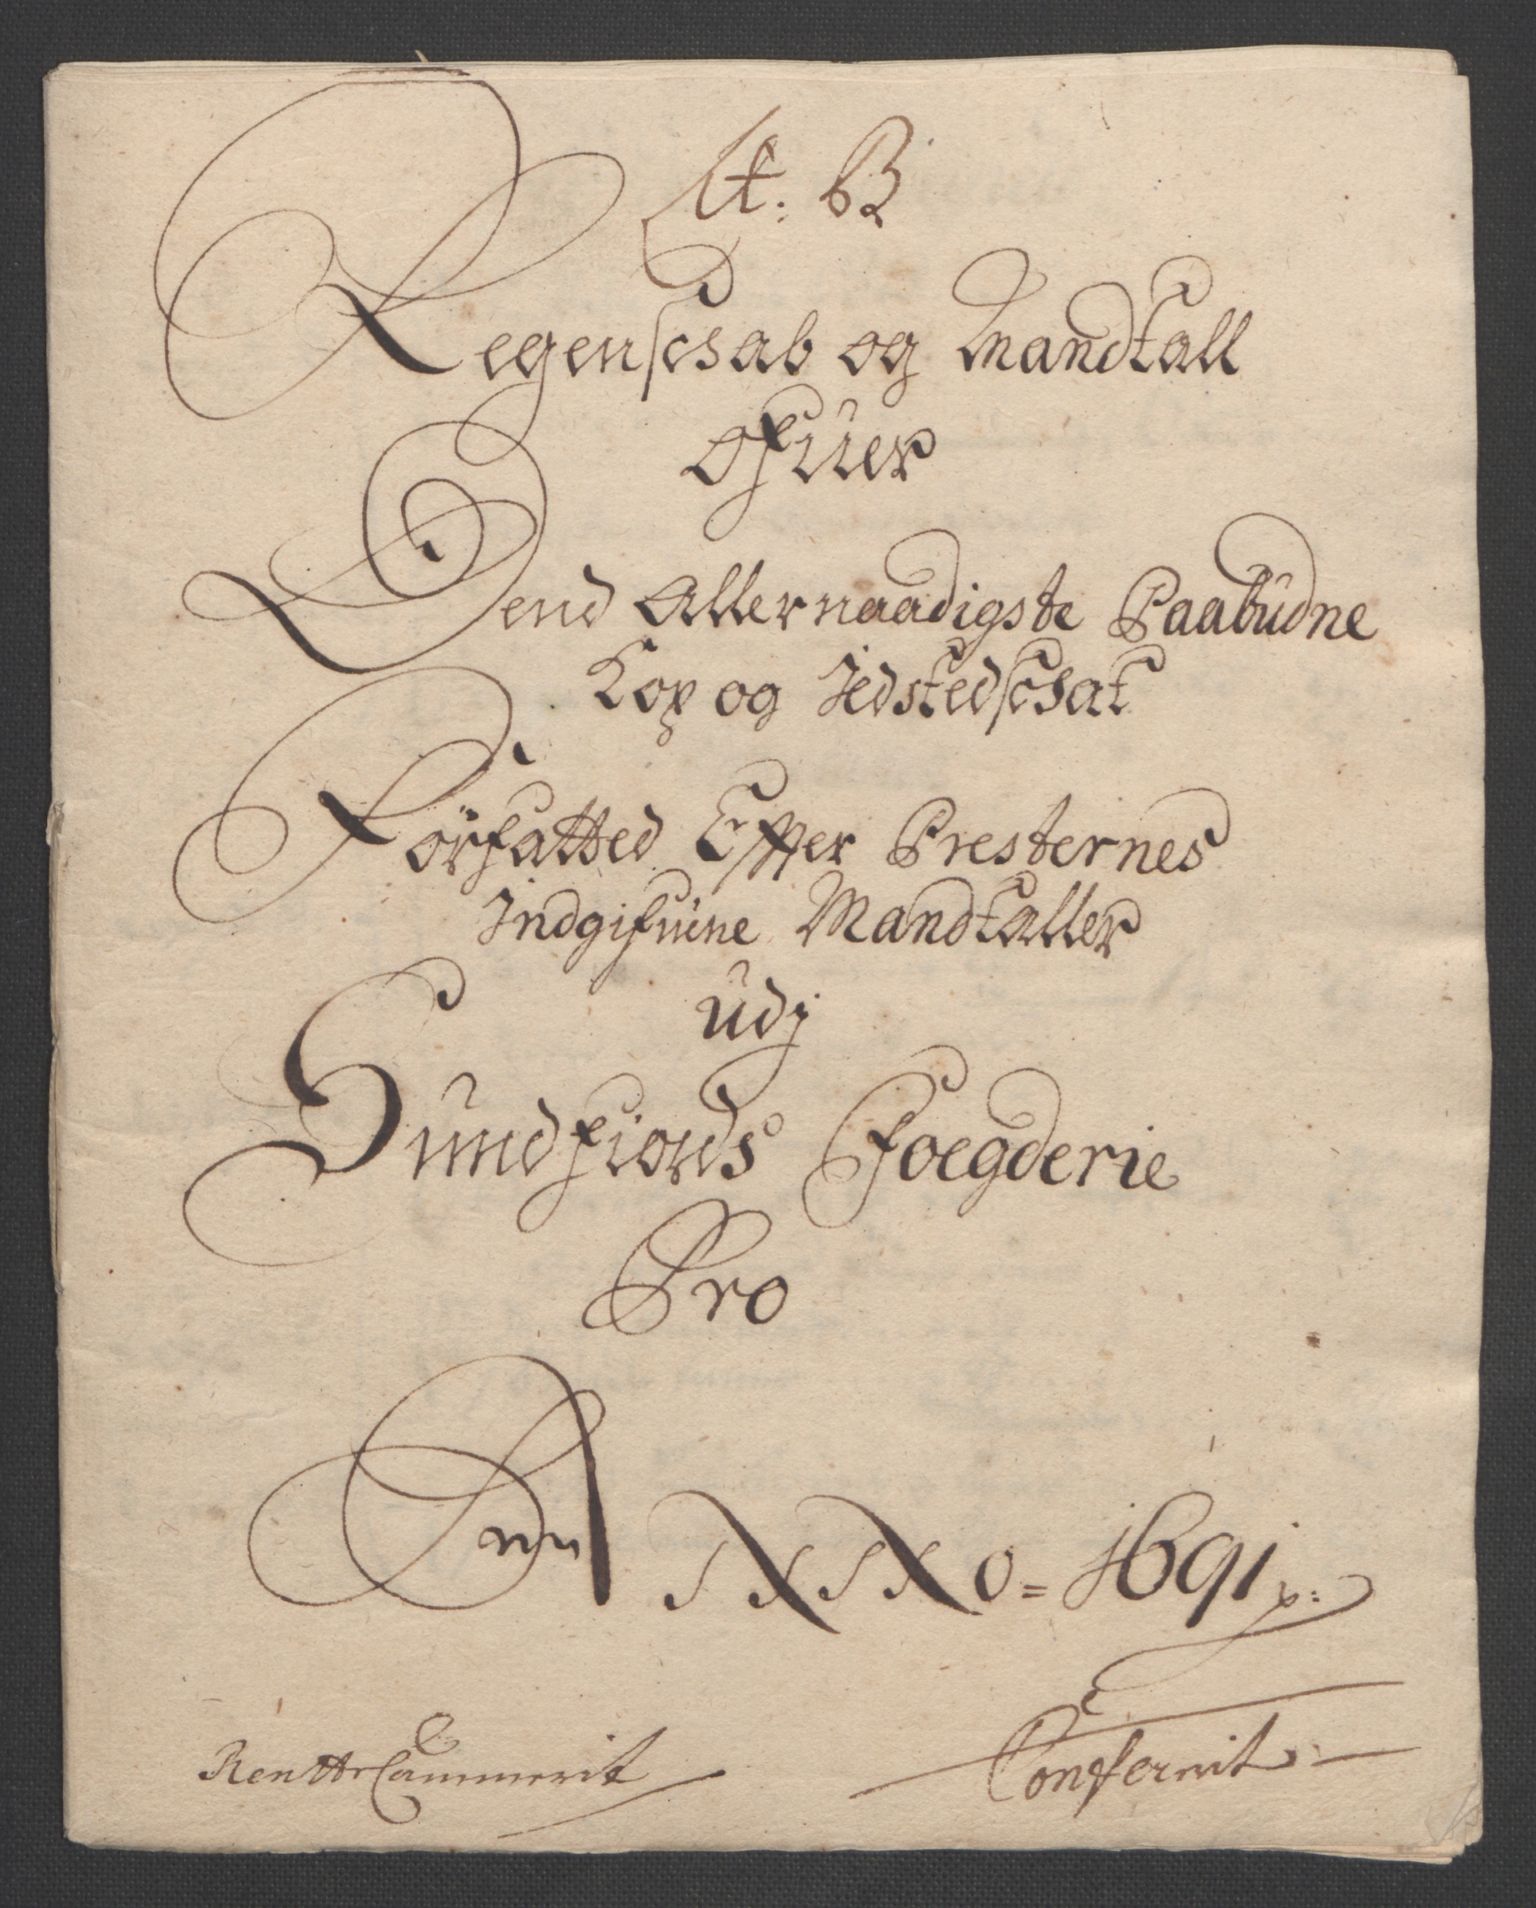 Lit: B
Regenschab og Mandtall
Ofuer
Dend Allernaadigste Paabudne
Kop og Ildstedschat
Forfatted Effter Presternes
Indgifuene Mandtaller
udj
Sundfiords Foegderie
Pro
Anno = 1691
RentteCammerit
Conferrit